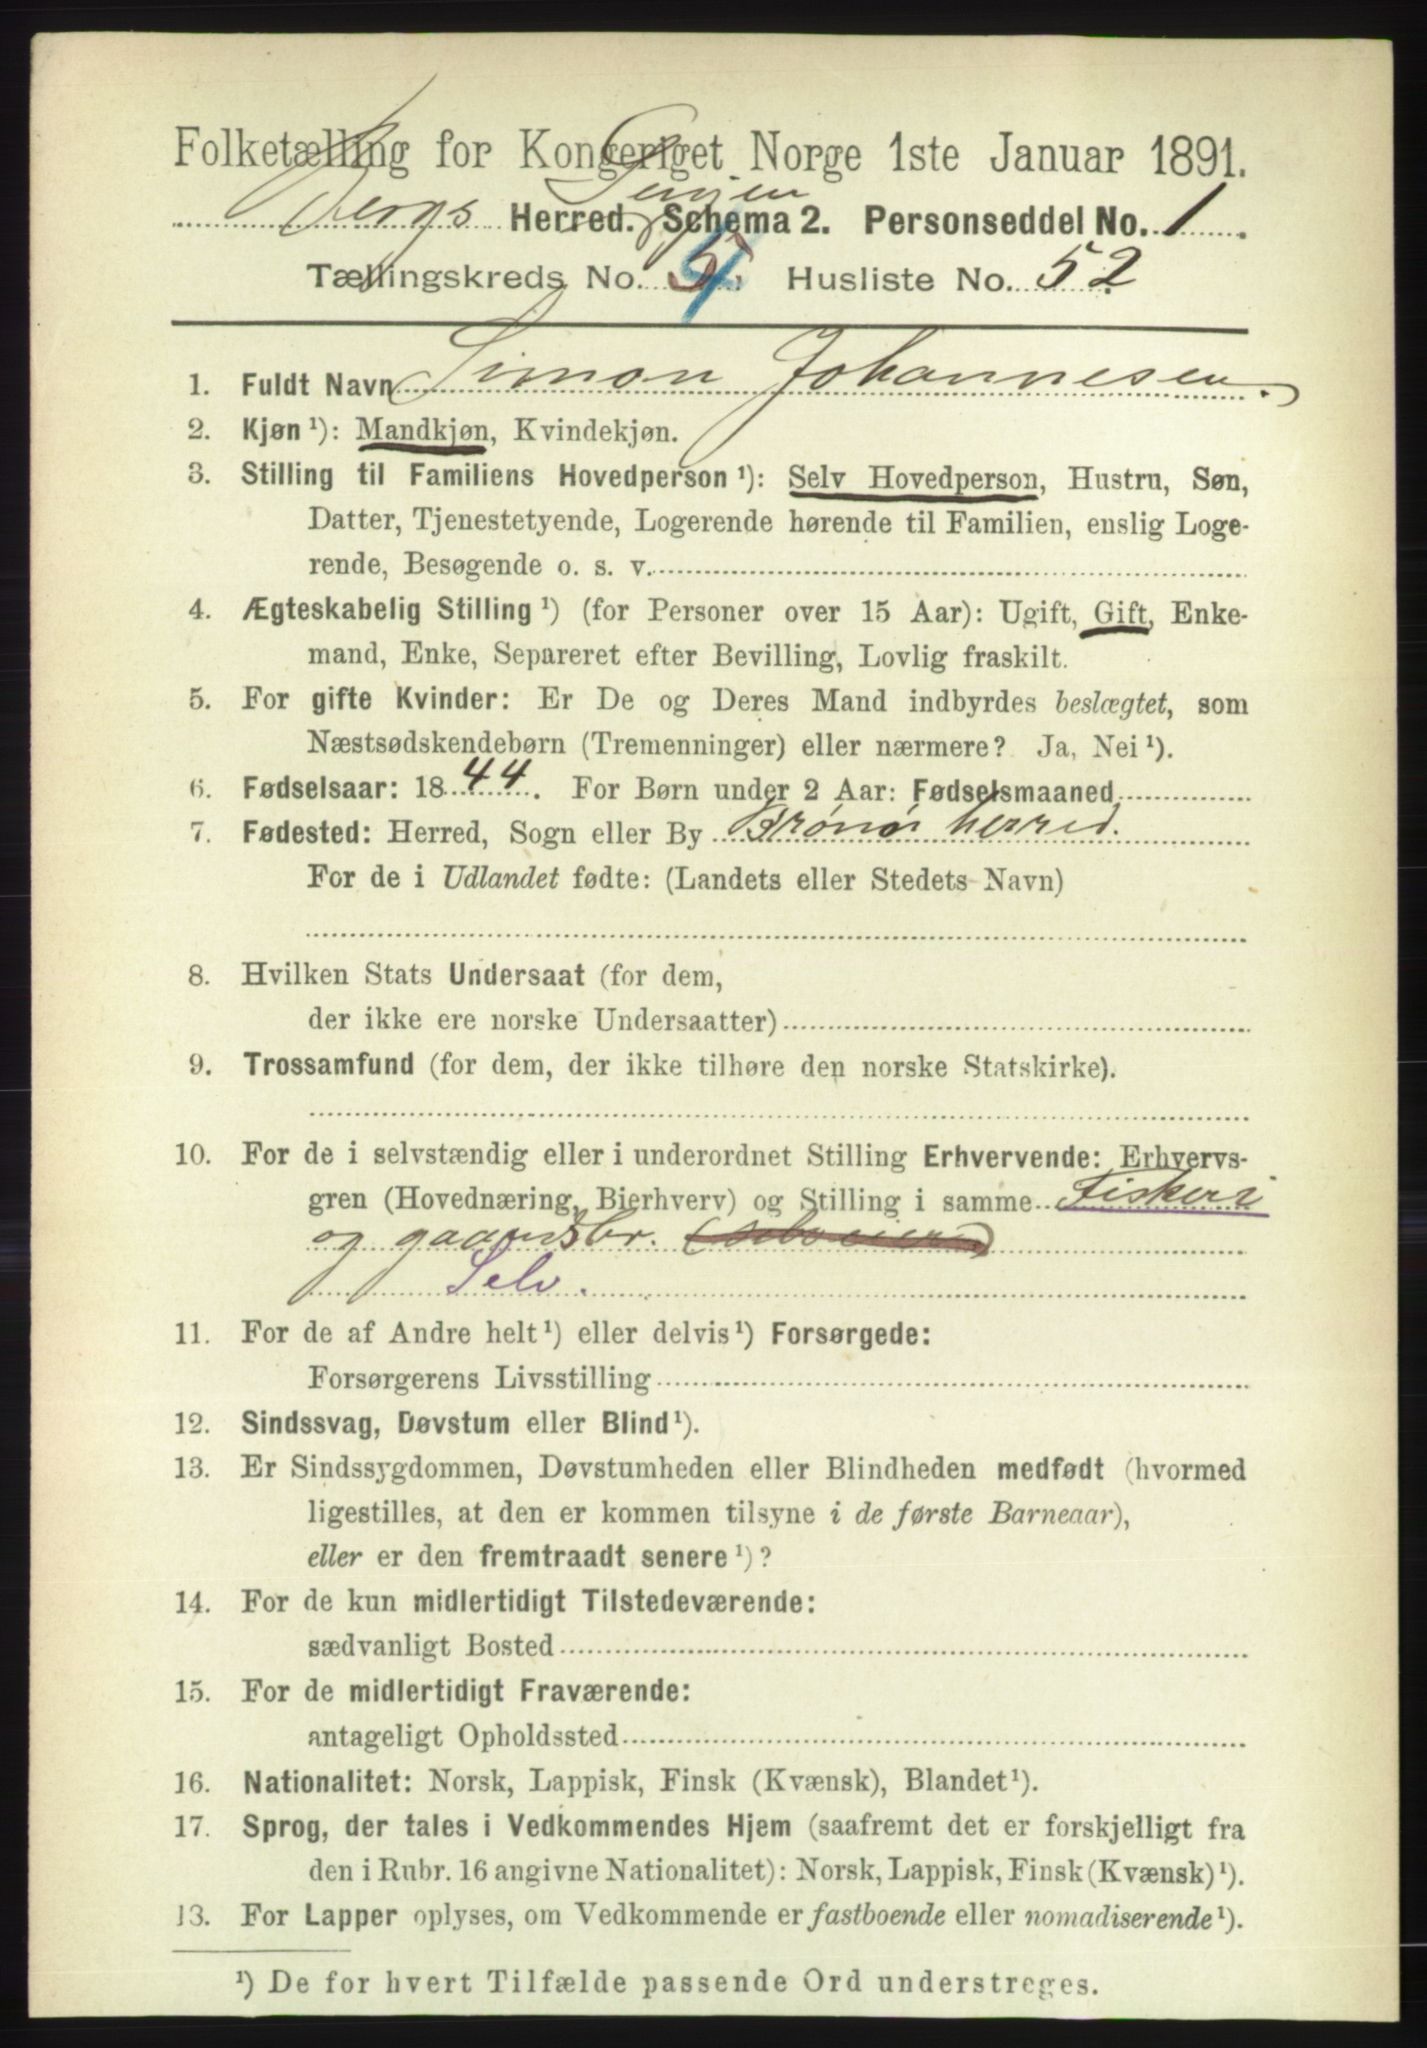 Folketælling for Kongeriget Norge 1ste Januar 1891.
Bergs Herred. Schema 2. Personseddel No. 1.
Tællingskreds No. 5. Husliste No. 52
1. Fuldt Navn Simon Johannesen.
2. Kjøn ¹): Mandkjøn, Kvindekjøn.
3. Stilling til Familiens Hovedperson ¹): Selv Hovedperson, Hustru, Søn,
Datter, Tjenestetyende, Logerende hørende til Familien, enslig Loge-
rende, Besøgende o. s. v.
4. Ægteskabelig Stilling ¹) (for Personer over 15 Aar): Ugift, Gift, Enke-
mand, Enke, Separeret efter Bevilling, Lovlig fraskilt.
5. For gifte Kvinder: Er De og Deres Mand indbyrdes beslægtet, som
Næstsødskendebørn (Tremenninger) eller nærmere? Ja, Nei ¹).
6. Fødselsaar: 1844. For Børn under 2 Aar: Fødselsmaaned
7. Fødested: Herred, Sogn eller By Brønø herred.
For de i Udlandet fødte: (Landets eller Stedets Navn)
8. Hvilken Stats Undersaat (for dem,
der ikke ere norske Undersaatter)
9. Trossamfund (for dem, der ikke tilhøre den norske Statskirke).
10. For de i selvstændig eller i underordnet Stilling Erhvervende: Erhvervs-
gren (Hovednæring, Bierhverv) og Stilling i samme Fiskeri
og gaardsbr. (selveiend)
Selv.
11. For de af Andre helt ¹) eller delvis ¹) Forsørgede:
Forsørgerens Livsstilling
12. Sindssvag, Døvstum eller Blind ¹).
13. Er Sindssygdommen, Døvstumheden eller Blindheden medfødt (hvormed
ligestilles, at den er kommen tilsyne i de første Barneaar),
eller er den fremtraadt senere ¹)?
14. For de kun midlertidigt Tilstedeværende:
sædvanligt Bosted
15. For de midlertidigt Fraværende:
antageligt Opholdssted
16. Nationalitet: Norsk, Lappisk, Finsk (Kvænsk), Blandet ¹).
17. Sprog, der tales i Vedkommendes Hjem (saafremt det er forskjelligt fra
den i Rubr. 16 angivne Nationalitet): Norsk, Lappisk, Finsk (Kvænsk) ¹).
13. For Lapper oplyses, om Vedkommende er fastboende eller nomadiserende ¹).
¹) De for hvert Tilfælde passende Ord understreges.